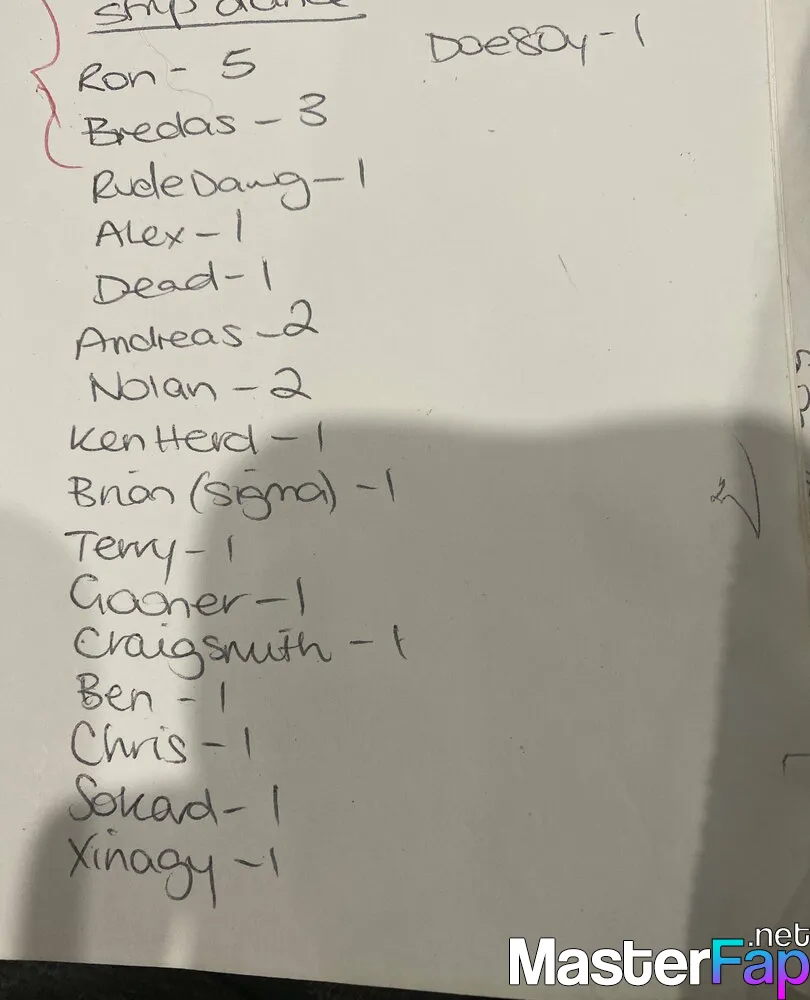 strip dance
Ron - 5
Bredas - 3
RudeDawg - 1
Alex - 1
Dead - 1
Andreas - 2
Nolan - 2
Ken Herd - 1
Brian (sigma) - 1
Terry - 1
Gooner - 1
Craigsmith - 1
Ben - 1
Chris - 1
Sokad - 1
Xinagy - 1
Doe80y - 1
MasterFap.net